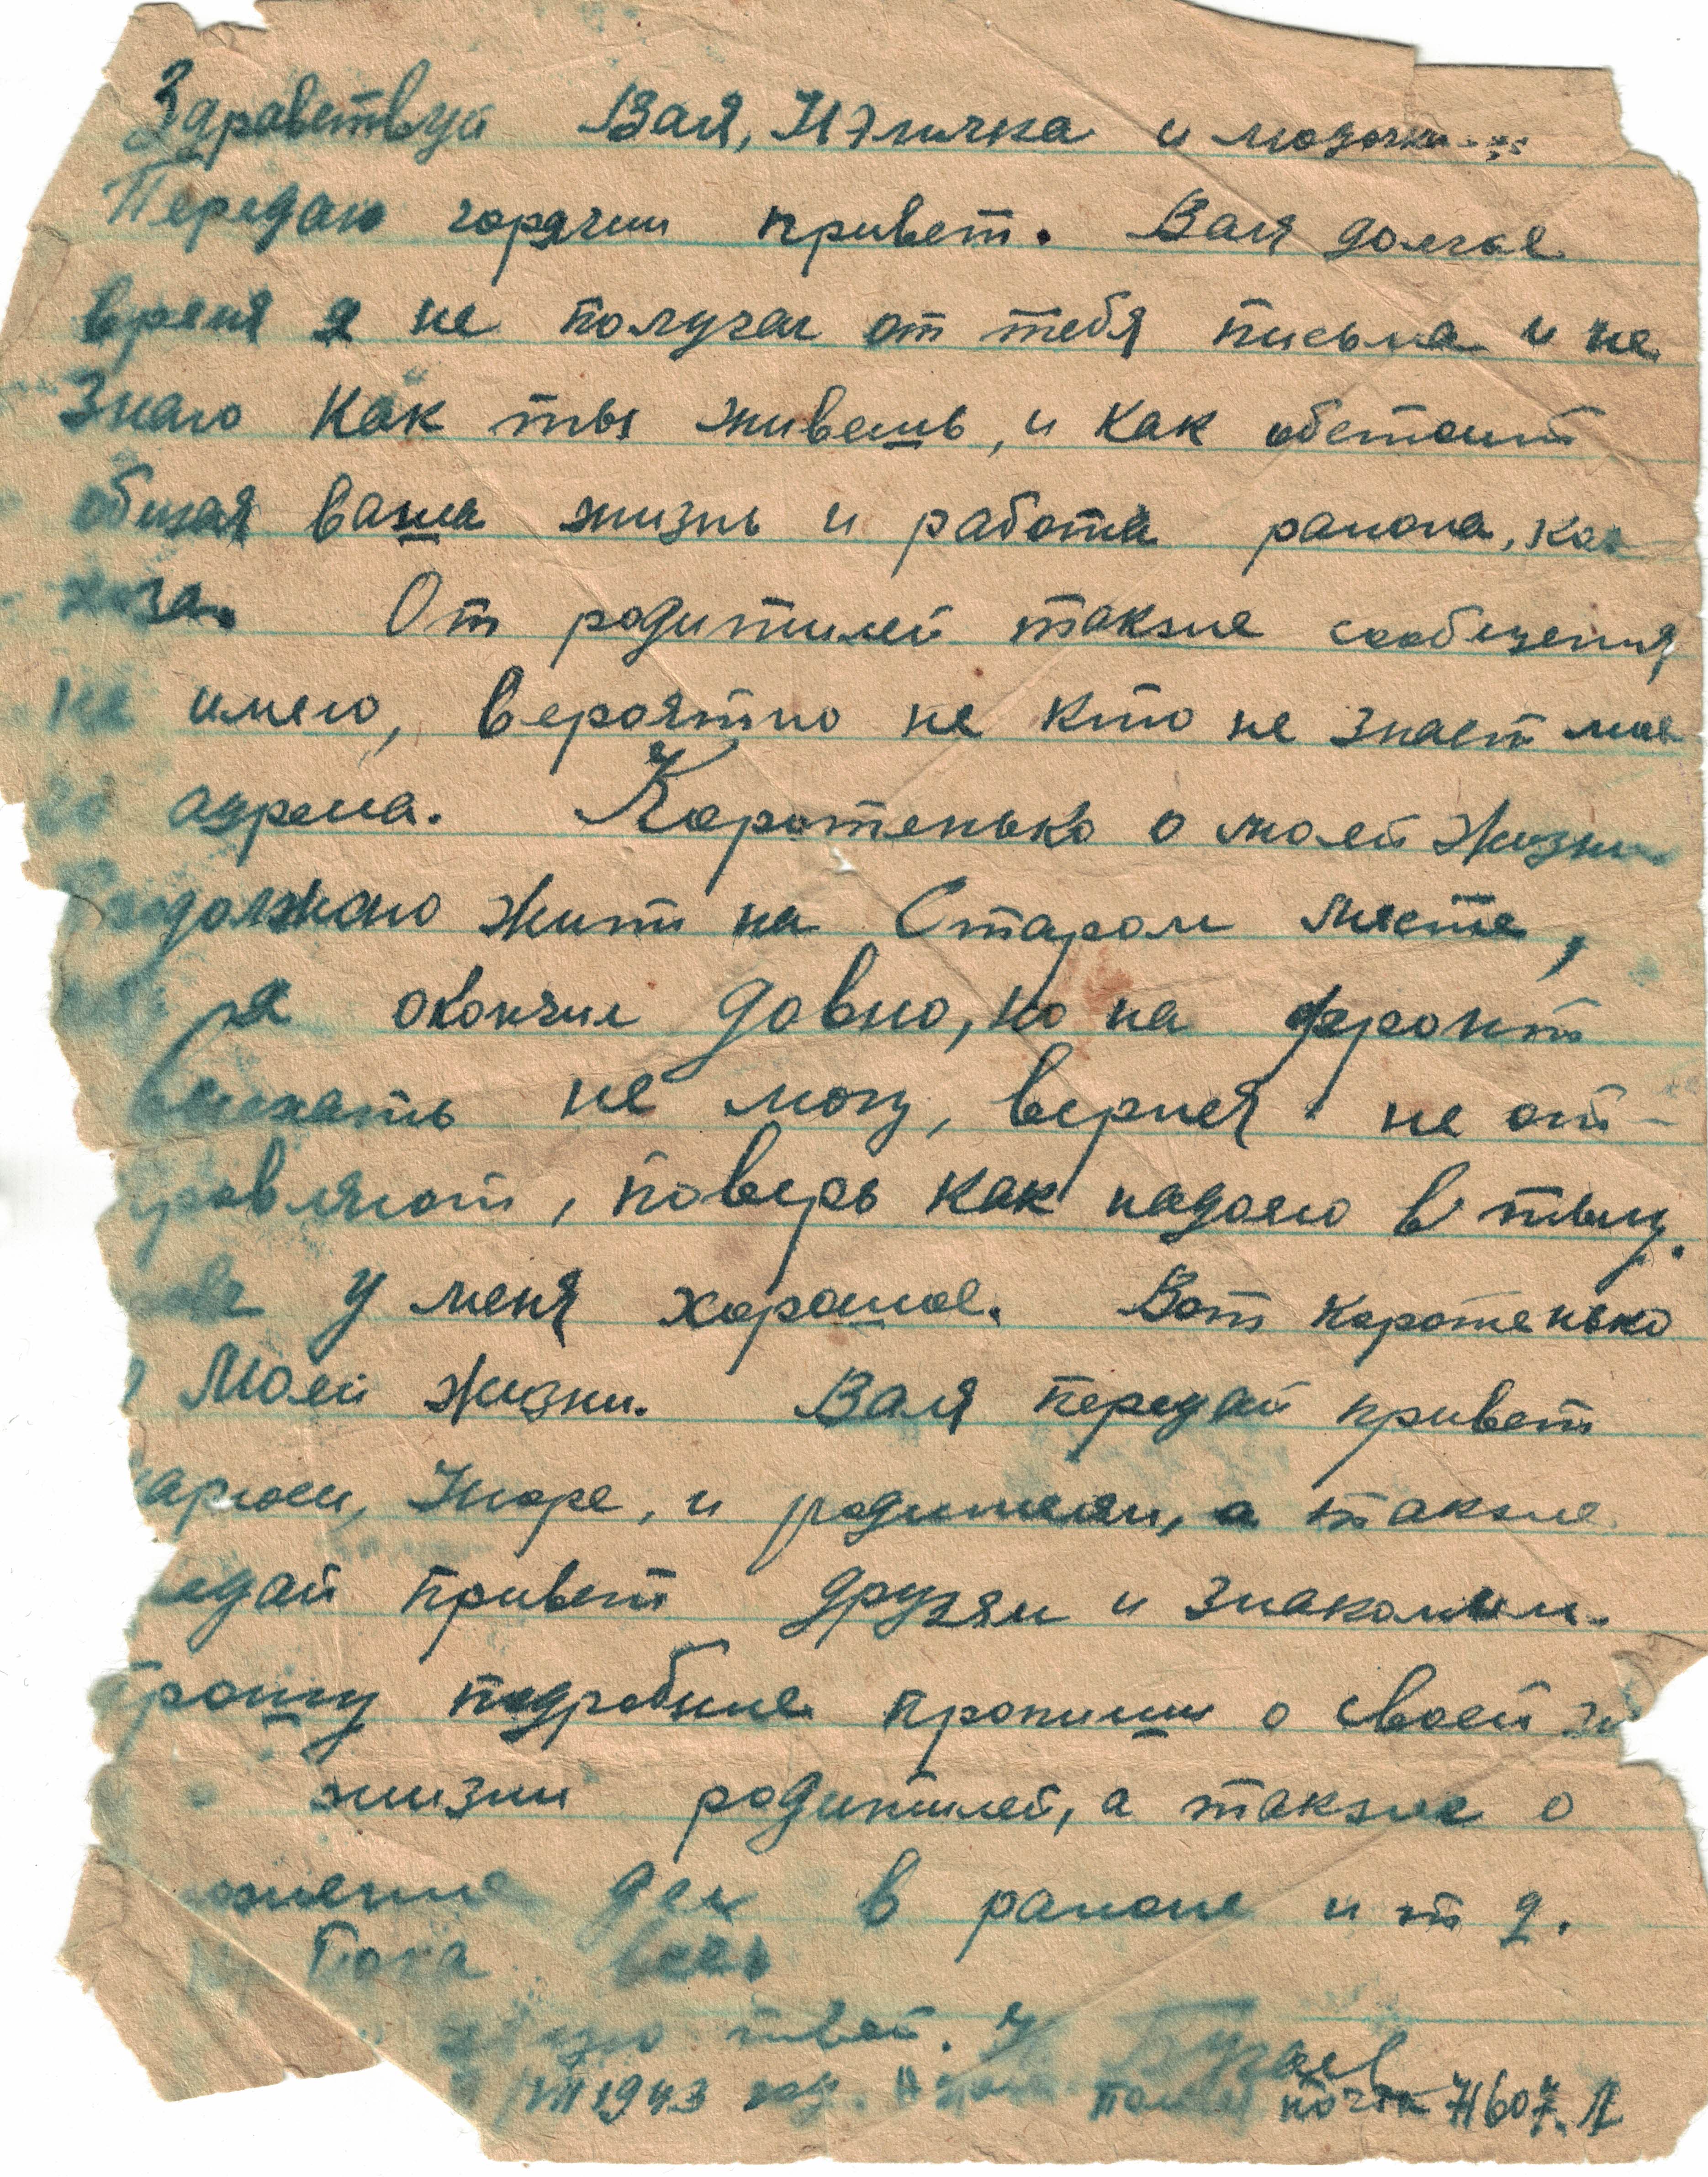 Здравствуй Валя, Нэличка и
Передаю горячии привет. Валя долгое
время я не получал от тебя письма и не
знаю как ты живешь, и как обстоит
общая ваша жизнь и работа раиона, кол
хоза. От родитилей также сообщения
не имею, вероятно не кто не знает мое
го адреса. Каротенько о моей жизни
родолжаю жить на Старом месте,
я окончил довно, но на фронт
выехать не могу, верней не от-
правляют, поверь как надоело в тылу.
у меня хорошое. Вот каротенько
о Моей жизни. Валя передай привет
арюси, Нюре, и родителям, а также
едай привет друзям и знакомым.
Прошу подробние пропиши о своей
жизни родитилей, а также о
ожение дел в раионе и т д.
Пока всех
твой. Бугаев
VIII 1943 почта 71607. Л